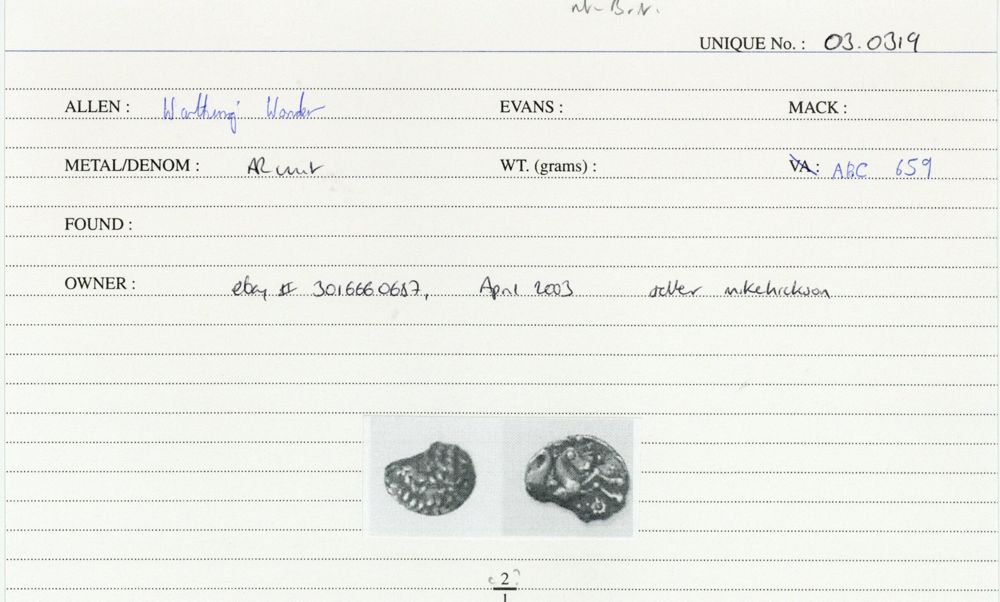 UNIQUE No. : 03.0319
ALLEN : Worthing Wonder EVANS : MACK :
METAL/DENOM : AR unit WT. (grams) : VA : ABC 659
FOUND :
OWNER : ebay # 3016660687, April 2003 seller mikehickson
2?
1